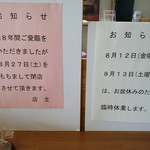 お知らせ
8年間ご愛顧を
いただきましたが
8月27日(土)を
もちまして閉店
させて頂きます。
店主
お知ら
8月12日(金
8月13日(土
は、お盆休みのた
臨時休業します。